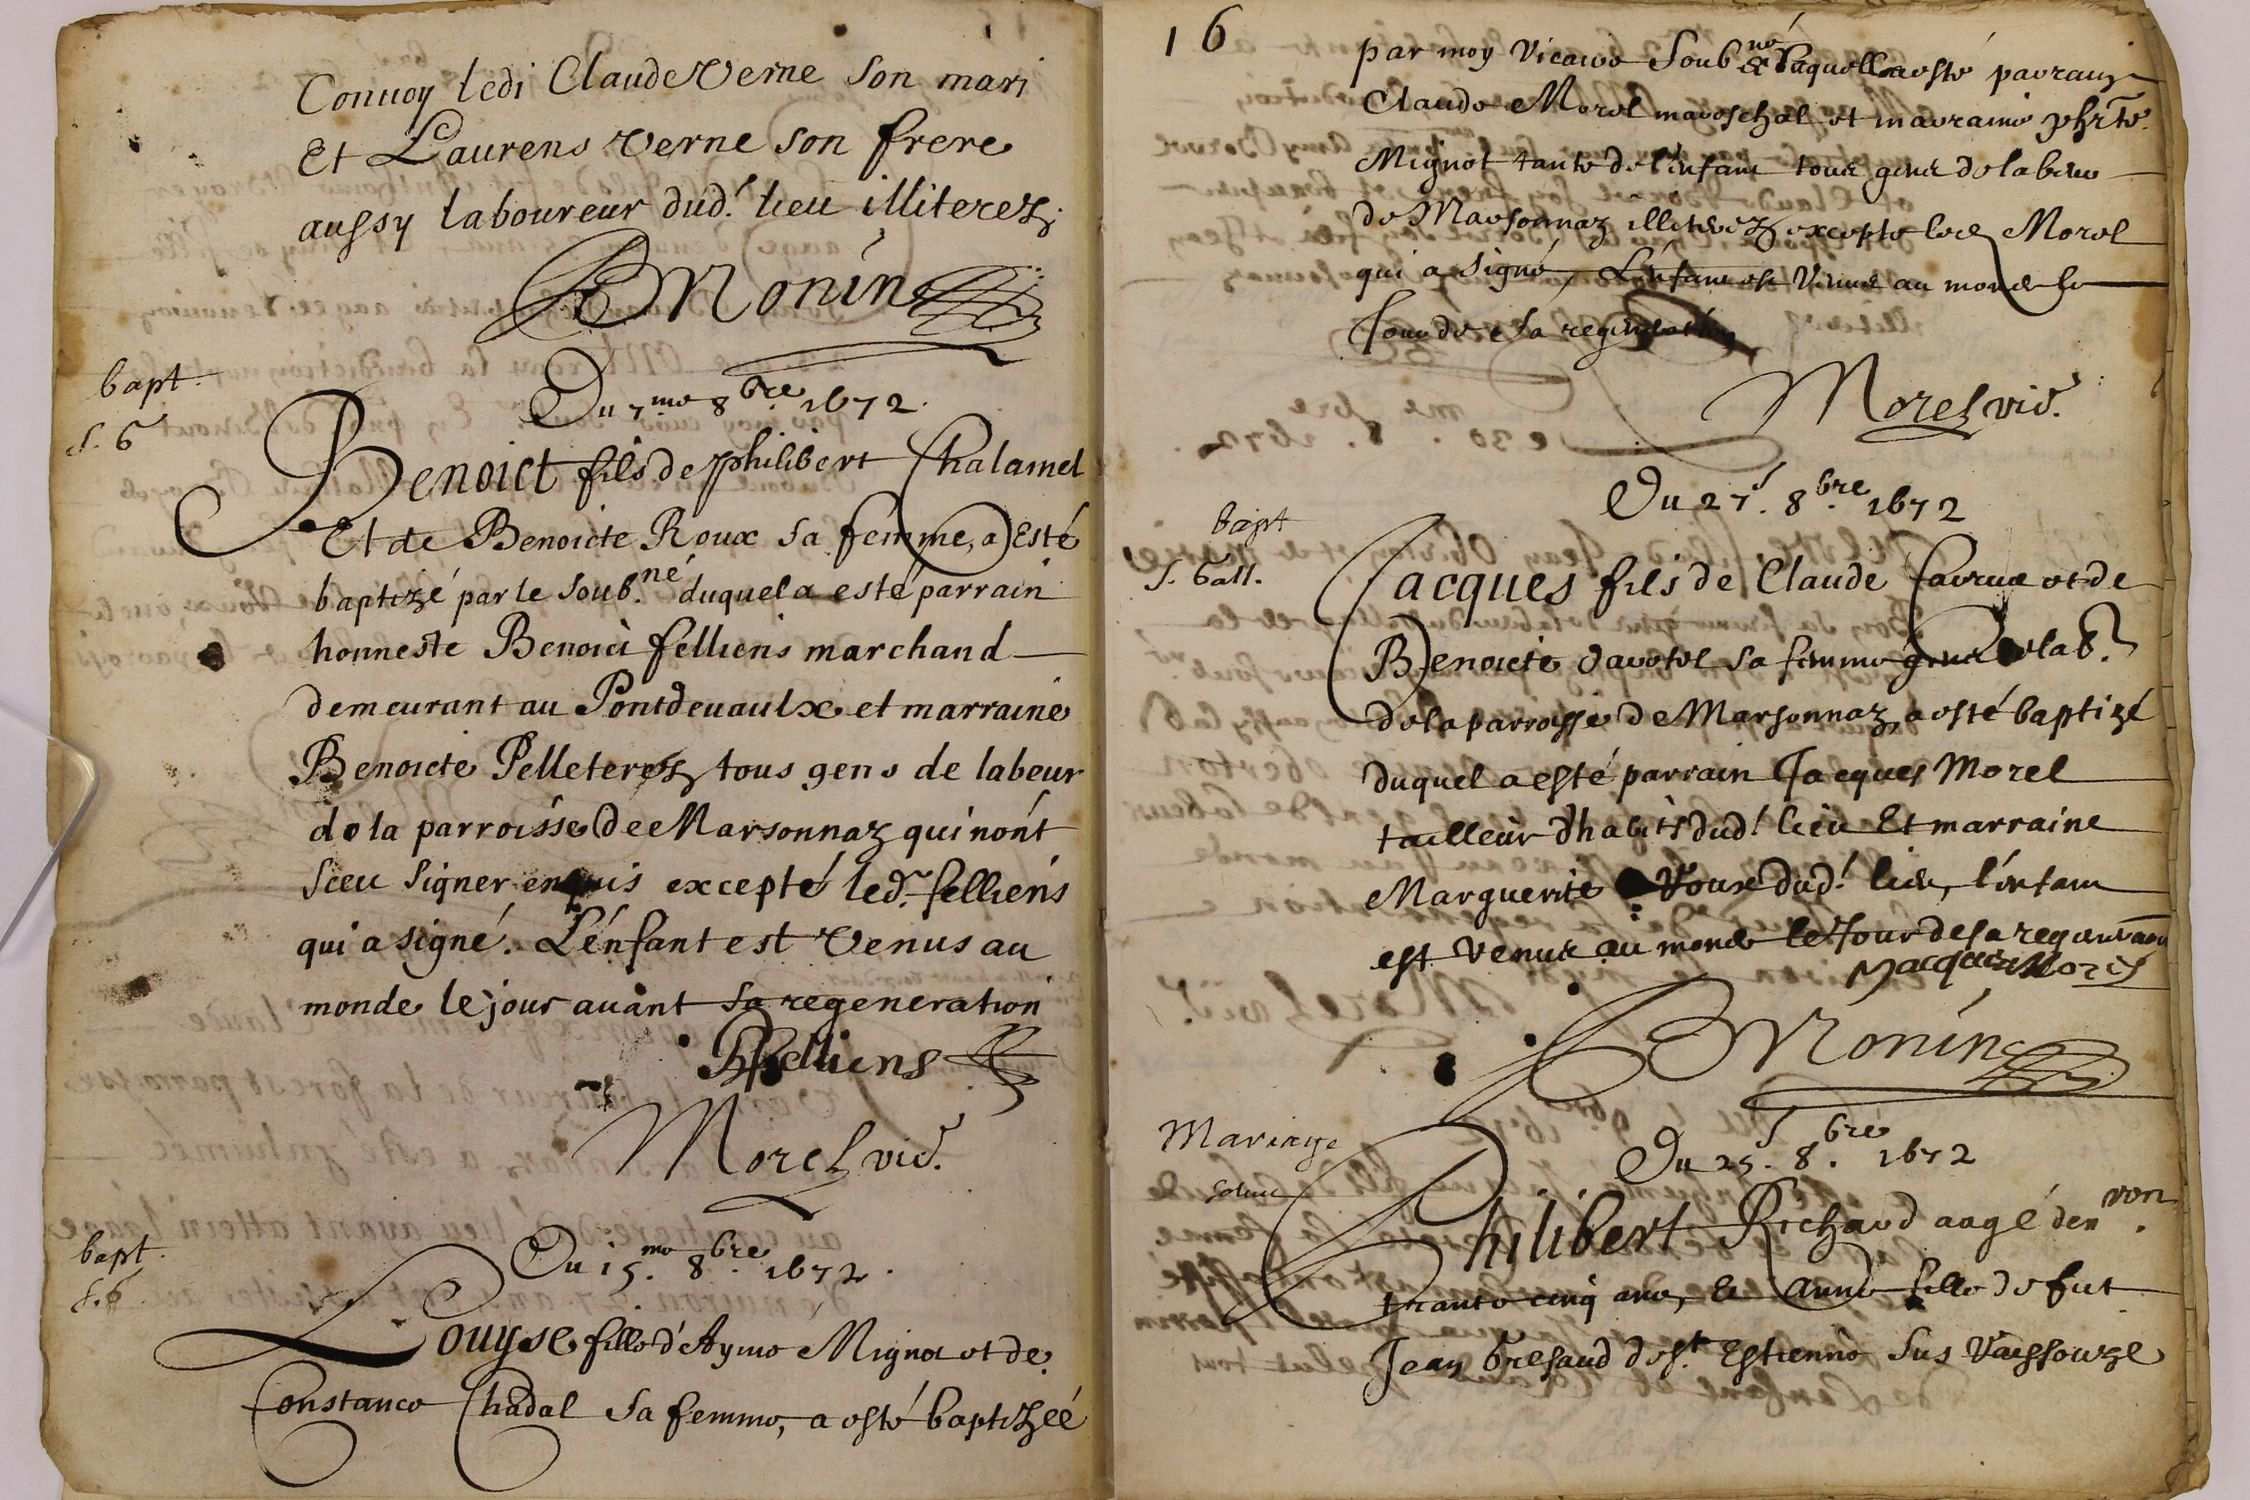 Conuoy ledi Claude Verne son mari
Et Laurens Verne son frere
aussy laboureur dud.t lieu illiterez
Monin
bapt.
Du 7.me 8.bre 1672.
S. G
Benoict fils de philibert Chalamel
Et de Benoicte Roux sa femme, a Esté
baptizé par le soub.né duquel a esté parrain
honneste Benoict felliens marchand
demeurant au Pontdeuaulx et marraine
Benoicte Pelleterez tous gens de labeur
de la parroisse de Marsonnaz qui n'ont
sceu signer enquis excepté led.t felliens
qui a signé. L'enfant est venus au
monde le jour auant sa regeneration
Bfelliens
Morel vic.
bapt.
Du 15.me 8.bre 1672.
Louyse fille d'Aymé Mignot et de
Constance Chadal sa femme, a esté baptizeé
16
par moy Vicaire soub.né & laquelle a esté parrain
Claude Morel mareschal et marraine
Mignot tante de l'enfant tous gens de labeur
de Marsonnaz illiterez excepte led Morel
qui a signé, L'enfant est venue au monde le
Jour de sa regeneration
Morel vic.
Du 27.t 8.bre 1672
bapt
Jacques fils de Claude et de
Benoicte sa femme gens de lab.r
de la parroisse de Marsonnaz, a esté baptizé
duquel a esté parrain Jacques Morel
tailleur d'habits dud.t lieu Et marraine
Marguerite Roux dud.t lieu, l'enfant
est venue au monde le Jour de sa regeneraon
Jacques Morel
Monin
Mariage
Du 25.t 8.bre 1672
Philibert Richard aagé d'en von.
trante cinq ans, & Anne fille de fut
Jean Bresaud de S.t Estienne sus